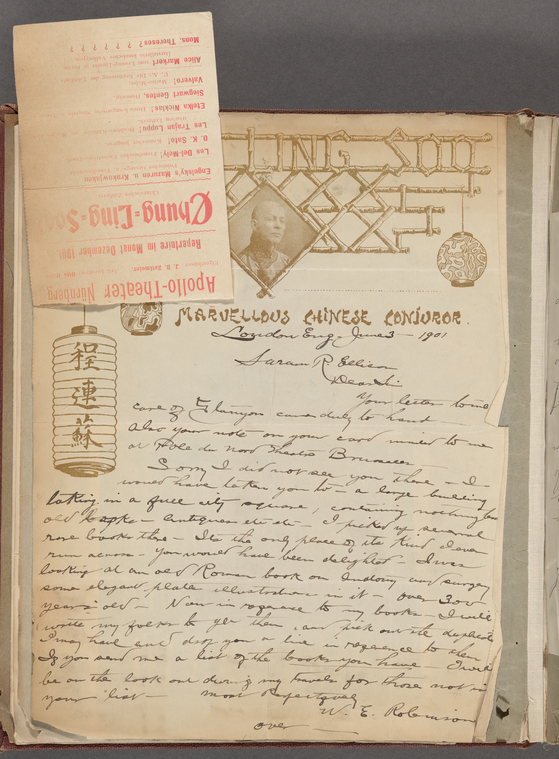 LING SOO
MARVELLOUS CHINESE CONJUROR.
London Eng. June 3 - 1901
Saram R Ellison
Dear Sir
Your letter to me
care of Flanyon came duly to hand
Also your note on your card mailed to me
at Pole du Nord Theatre Brussels
Sorry I did not see you there - I
would have taken you to - a large building
taking in a full city square, containing nothing but
old books - antiques etc etc - I picked up several
rare books there - Its the only place of its kind I ever
run across - you would have been delighted - I was
looking at an old Roman book on and surgery
some elegant plate illustrations in it - over 300
years old - Now in regards to my books - I will
write my folks to get them, and pick out the duplicate
I may have and drop you a line in reference to them
If you send me a list of the books you have I will
be on the look out during my travels for those not in
your list - most Respectfully
W. E. Robinson
over
程連蘇
Apollo-Theater Nürnberg
Repertoire im Monat Dezember 1901
Chung-Ling-Soo
Engelsky's Mazuren u. Krakowjaken
Les Del-Mely!
O. K. Sato!
Les Trajan Luppu!
Etelka Nicklas!
Siegwart Gentes,
Valvero!
Alice Markert
Mons. Thereses?
? ? ? ? ? ? ?